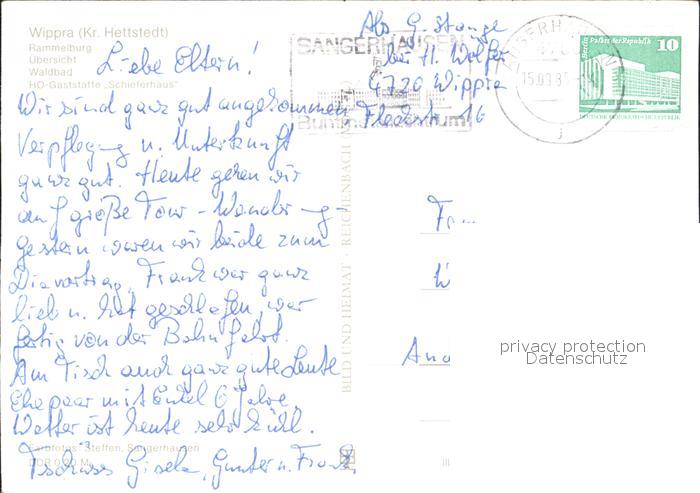 Wippra (Kr. Hettstedt)
Rammelburg
Übersicht
Waldbad
HO-Gaststätte „Schieferhaus"
Liebe Eltern!
Wir sind ganz gut angekommen
Verpflegung u. Unterkunft
ganz gut. Heute gehen wir
auf große Tour - Wandrg -
gestern waren wir beide zum
Diavortrag, Frank war ganz
lieb u. hat geschlafen, war
fertig von der Bahnfahrt.
Am Tisch auch ganz gute Leute
Ehepaar mit Enkel 6 Jahre,
Wetter ist heute sehr kühl.
Tschüss Gisela, Gunter u. Frank
Farbfotos: Steffen, Sangerhausen
DDR 0,20 M
Abs G. Stange
bei H. Wolfer
4720 Wippra
16
SANGERHAUSEN
15.09.8
Berlin Palast der Republik 10
DEUTSCHE DEMOKRATISCHE REPUBLIK
BILD UND HEIMAT · REICHENBACH
privacy protection
Datenschutz